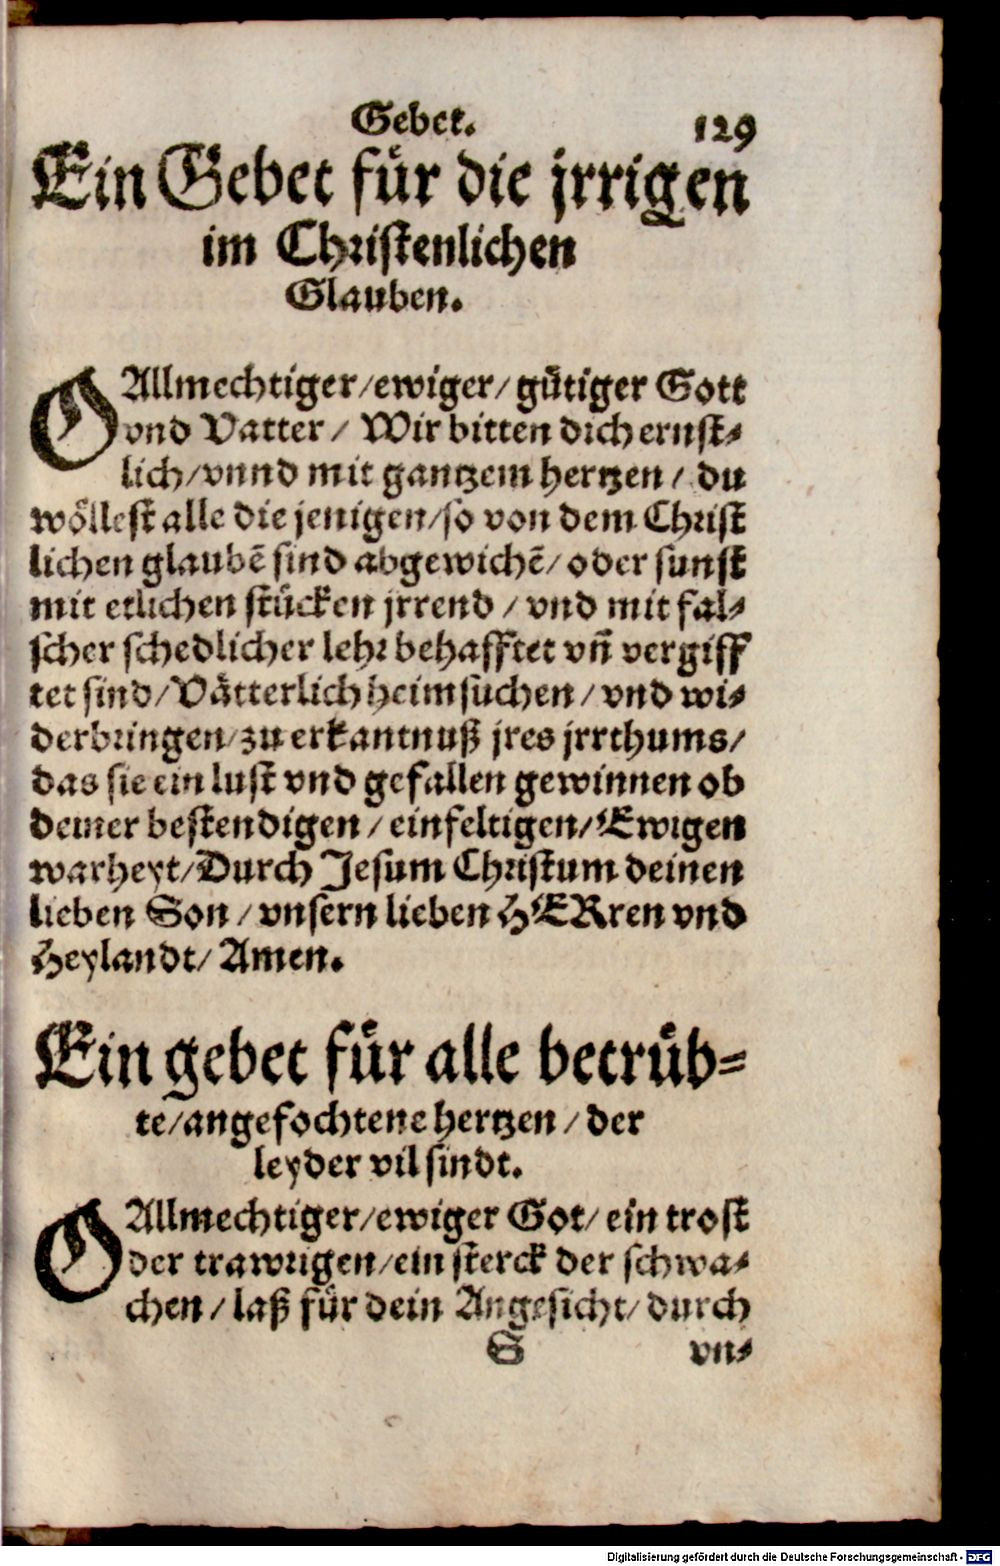 Gebet. 129
Ein Gebet für die jrrigen
im Christenlichen
Glauben.
O Allmechtiger/ewiger/ gütiger Gott
vnd Vatter/ Wir bitten dich ernst-
lich/vnnd mit gantzem hertzen/ du
wöllest alle die jenigen/so von dem Christ
lichen glaubẽ sind abgewichẽ/ oder sunst
mit etlichen stücken jrrend/ vnd mit fal-
scher schedlicher lehr behafftet vñ vergiff
tet sind/Vätterlich heimsuchen/ vnd wi-
derbringen/zu erkantnuß jres jrrthums/
das sie ein lust vnd gefallen gewinnen ob
deiner bestendigen/ einfeltigen/Ewigen
warheyt/Durch Jesum Christum deinen
lieben Son/ vnsern lieben HERren vnd
Heylandt/ Amen.
Ein gebet für alle betrüb-
te/angefochtene hertzen/ der
leyder vil sindt.
O Allmechtiger/ewiger Got/ ein trost
der trawrigen/ein sterck der schwa-
chen/ laß für dein Angesicht/ durch
S vn-
Digitalisierung gefördert durch die Deutsche Forschungsgemeinschaft - DFG